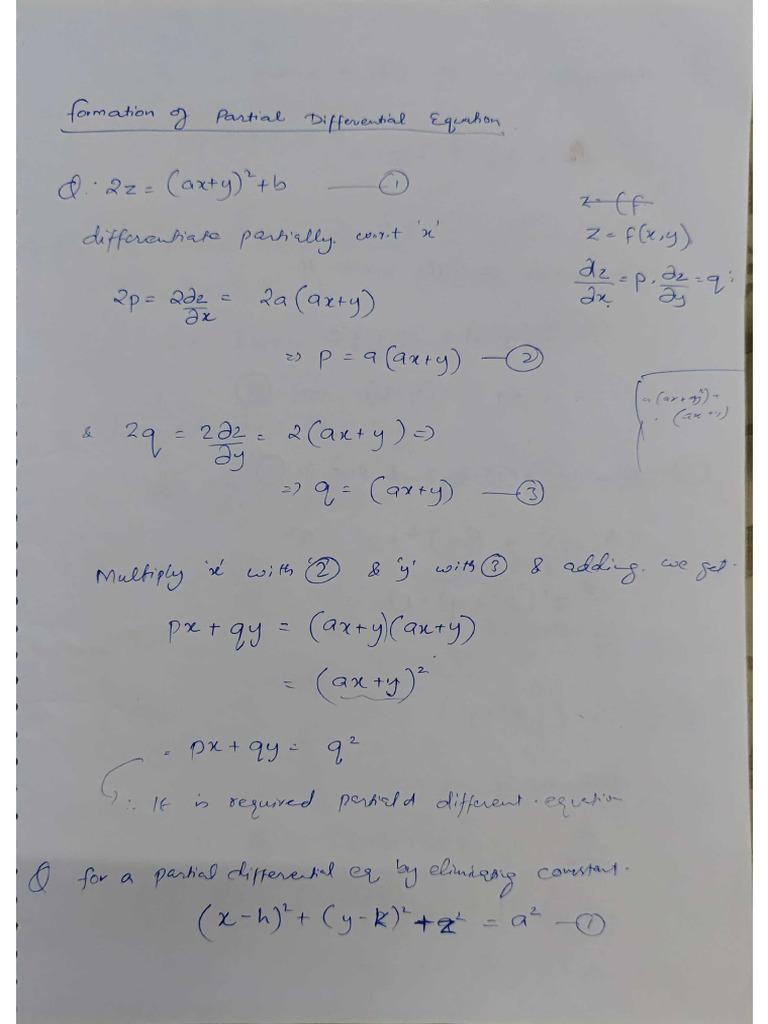 formation of Partial Differential Equation
Q: 2z = (ax+y)² + b — ①
z = (f
differentiate partially w.r.t 'x'
z = f(x,y)
∂z/∂x = p, ∂z/∂y = q:
2p = 2∂z/∂x = 2a(ax+y)
=> p = a(ax+y) — ②
& 2q = 2∂z/∂y = 2(ax+y) =>
(ax+y)
=> q = (ax+y) — ③
Multiply 'x' with ② & 'y' with ③ & adding. we get.
px + qy = (ax+y)(ax+y)
= (ax+y)²
= px + qy = q²
∴ It is required partial different. equation
Q for a partial differential eq by constant.
(x-h)² + (y-k)² + z² = a² — ①